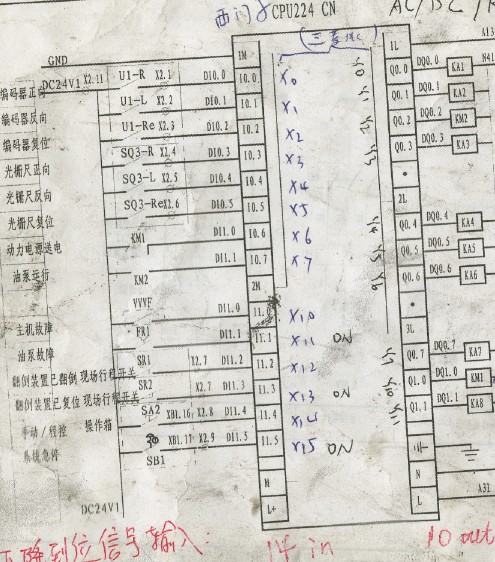 西门子 CPU224 CN AC/DC/R
(三菱
GND 1M 1L A13
DC24V1 X2.11 U1-R X2.1 DI0.0 I0.0 X0 Y0 Q0.0 DQ0.0 KA1 N41
编码器正向 U1-L X2.2 DI0.1 I0.1 X1 Y1 Q0.1 DQ0.1 KA2
编码器反向 U1-Re X2.3 DI0.2 I0.2 X2 Y2 Q0.2 DQ0.2 KM2
编码器复位 SQ3-R X2.4 DI0.3 I0.3 X3 Y3 Q0.3 DQ0.3 KA3
光栅尺正向 SQ3-L X2.5 DI0.4 I0.4 X4
光栅尺反向 SQ3-Re X2.6 DI0.5 I0.5 X5 2L
光栅尺复位 KM1 DI1.0 I0.6 X6 Y4 Q0.4 DQ0.4 KA4
动力电源送电 DI1.1 I0.7 X7 Y5 Q0.5 DQ0.5 KA5
油泵运行 KM2 2M Y6 Q0.6 DQ0.6 KA6
VVVF DI1.0 I1. X10
主机故障 FR1 DI1.1 I1.1 X11 ON 3L
油泵故障 SR1 X2.7 DI1.2 I1.2 X12 Q0.7 DQ0.7 KA7
翻倒装置已翻倒 现场行程开关 SR2 X2.7 DI1.3 I1.3 X13 ON Y10 Q1.0 DQ1.0 KM1
翻倒装置已复位 现场行程开关 SA2 XB1.16 X2.8 DI1.4 I1.4 X14 Y11 Q1.1 DQ1.1 KA8
手动/程控 操作箱 XB1.17 X2.9 DI1.5 I1.5 X15 ON
系统急停 SB1 M N
DC24V1 L+ L A31
下降到位信号输入: 14 in 10 out